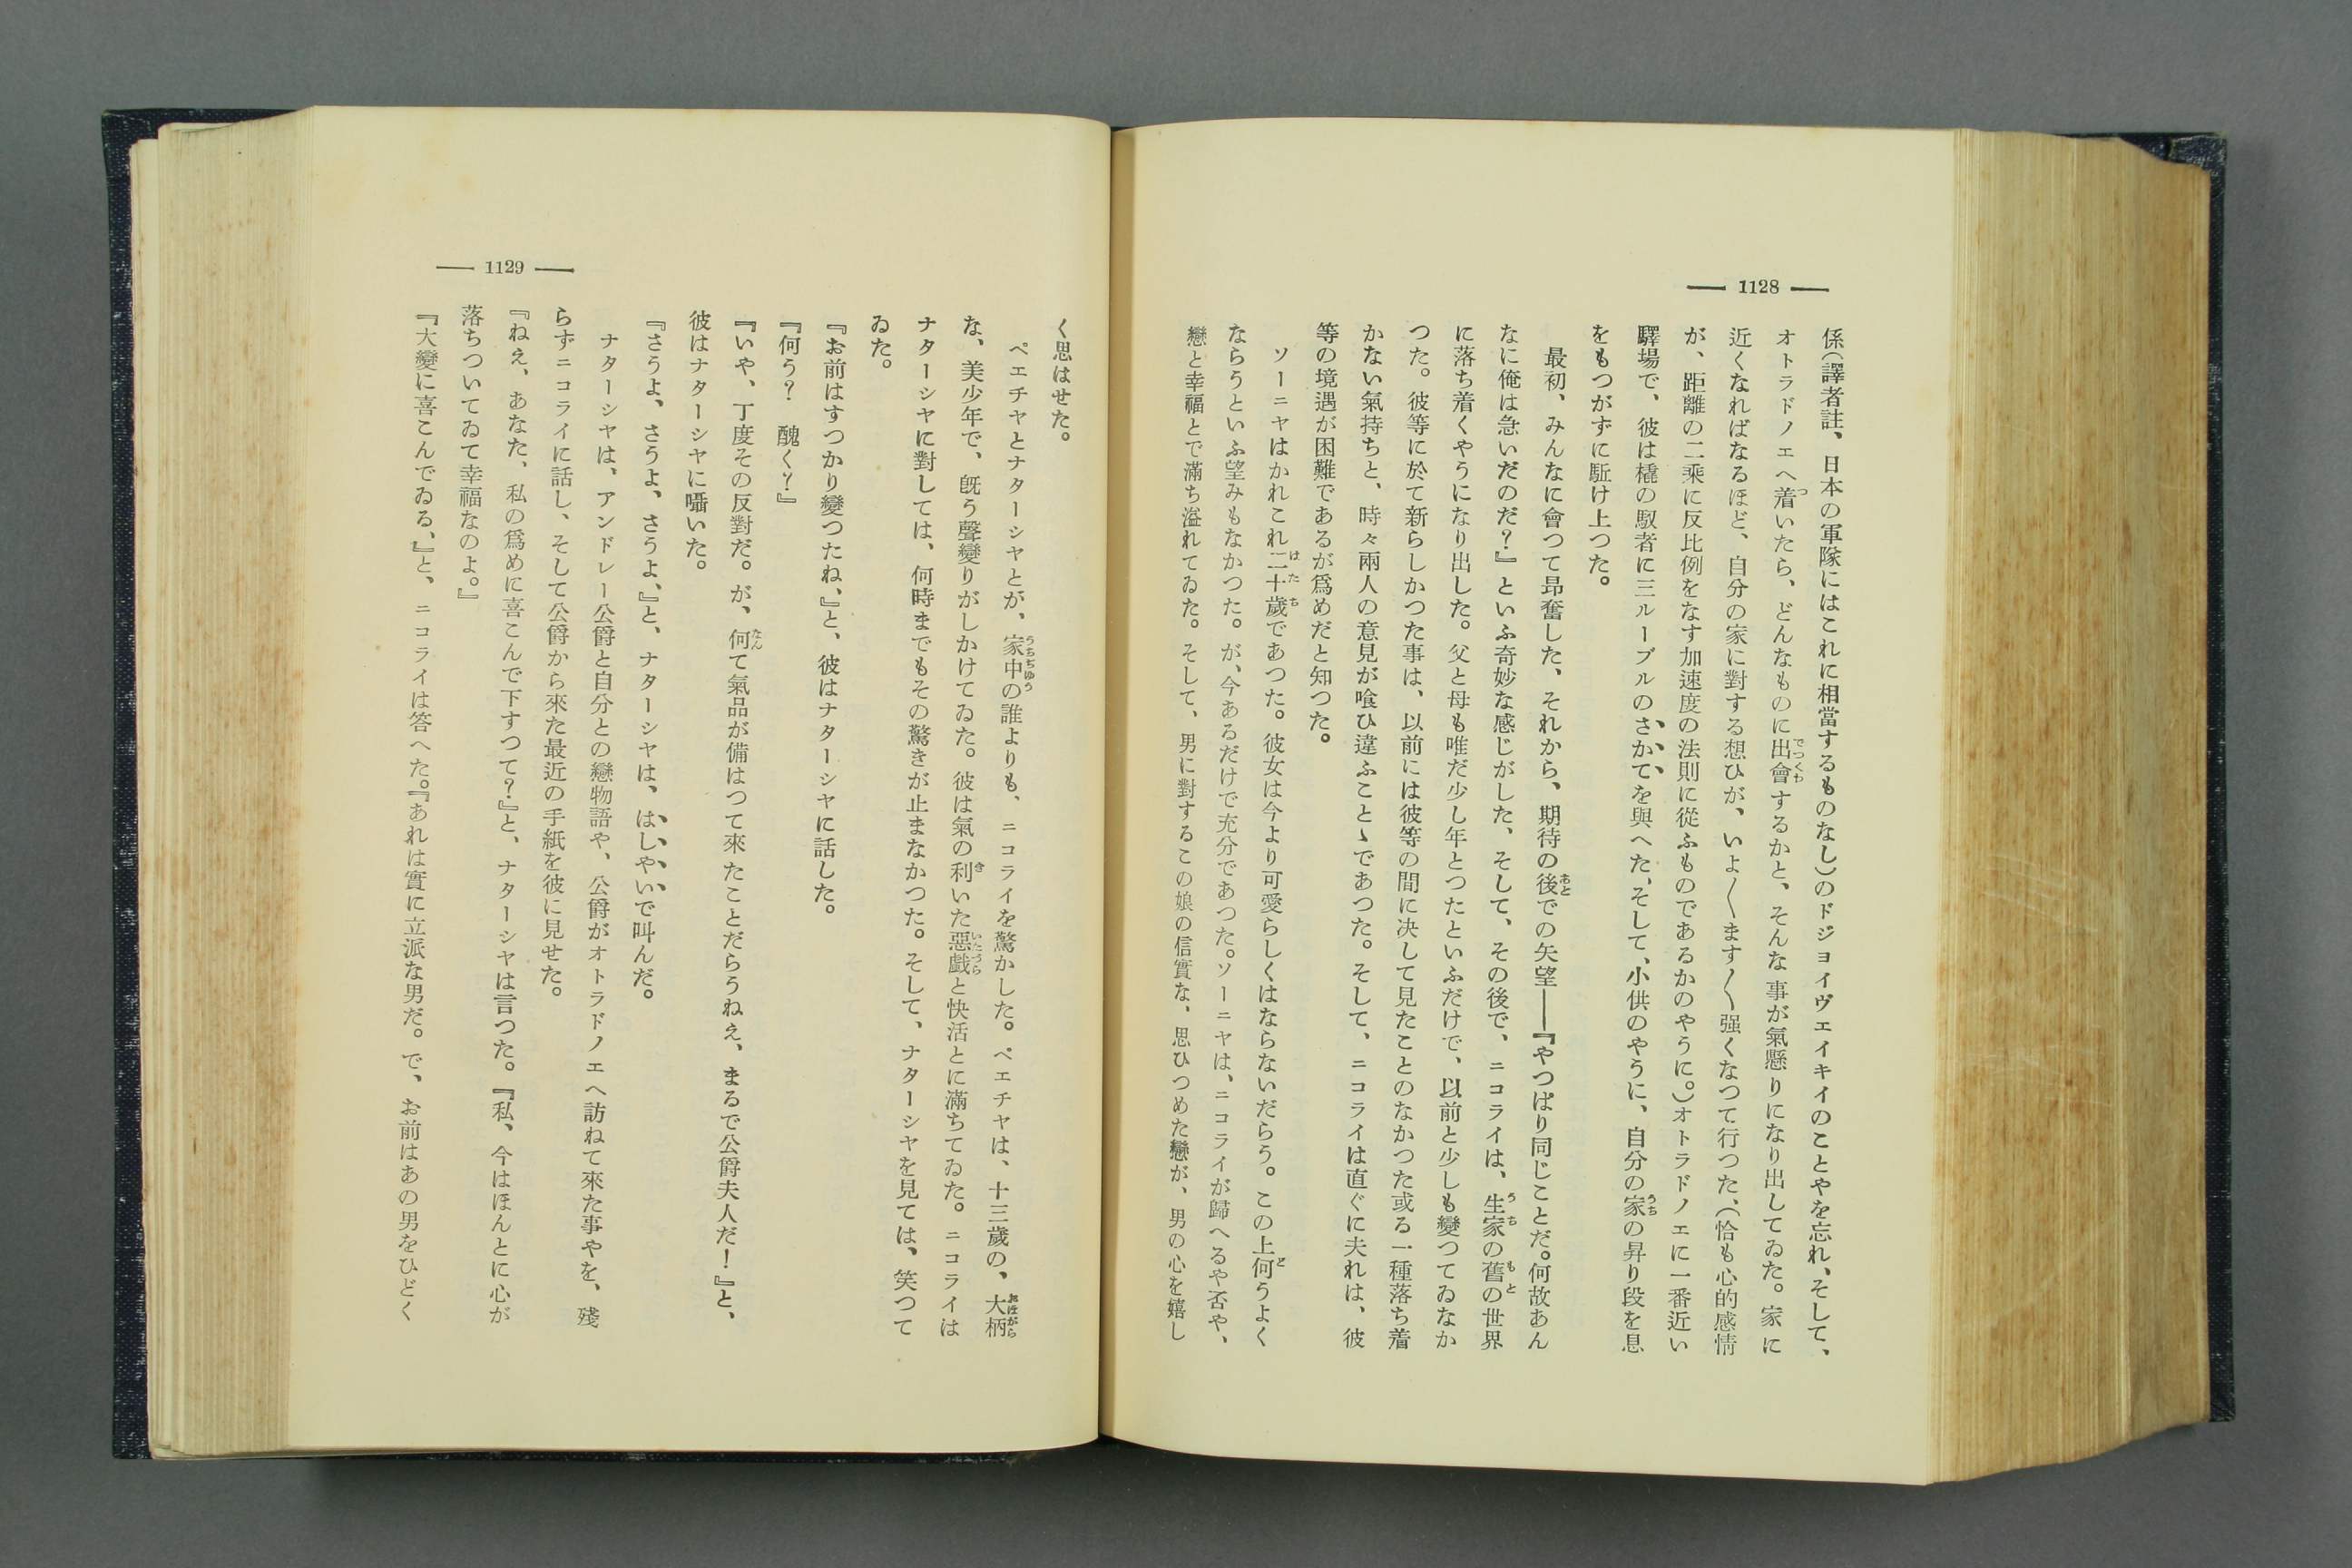 — 1128 —
係（譯者註、日本の軍隊にはこれに相當するものなし）のドジョイヴェイキイのことやを忘れ、そして、
オトラドノエへ着いたら、どんなものに出會するかと、そんな事が氣懸りになり出してゐた。家に
近くなればなるほど、自分の家に對する想ひが、いよ〱ます〱强くなつて行つた、（恰も心的感情
が、距離の二乘に反比例をなす加速度の法則に從ふものであるかのやうに。）オトラドノエに一番近い
驛場で、彼は橇の馭者に三ルーブルのさかてを與へた、そして、小供のやうに、自分の家の昇り段を息
をもつがずに駈け上つた。
最初、みんなに會つて昻奮した、それから、期待の後での失望――『やつぱり同じことだ。何故あん
なに俺は急いだのだ？』といふ奇妙な感じがした、そして、その後で、ニコライは、生家の舊の世界
に落ち着くやうになり出した。父と母も唯だ少し年とつたといふだけで、以前と少しも變つてゐなか
つた。彼等に於て新らしかつた事は、以前には彼等の間に決して見たことのなかつた或る一種落ち着
かない氣持ちと、時々兩人の意見が喰ひ違ふことゝであつた。そして、ニコライは直ぐに夫れは、彼
等の境遇が困難であるが爲めだと知つた。
ソーニヤはかれこれ二十歲であつた。彼女は今より可愛らしくはならないだらう。この上何うよく
ならうといふ望みもなかつた。が、今あるだけで充分であつた。ソーニヤは、ニコライが歸へるや否や、
戀と幸福とで滿ち溢れてゐた。そして、男に對するこの娘の信實な、思ひつめた戀が、男の心を嬉し
— 1129 —
く思はせた。
ペエチヤとナターシヤとが、家中の誰よりも、ニコライを驚かした。ペエチヤは、十三歲の、大柄
な、美少年で、旣う聲變りがしかけてゐた。彼は氣の利いた惡戲と快活とに滿ちてゐた。ニコライは
ナターシヤに對しては、何時までもその驚きが止まなかつた。そして、ナターシヤを見ては、笑つて
ゐた。
『お前はすつかり變つたね、』と、彼はナターシヤに話した。
『何う？　醜く？』
『いや、丁度その反對だ。が、何て氣品が備はつて來たことだらうねえ、まるで公爵夫人だ！』と、
彼はナターシヤに囁いた。
『さうよ、さうよ、さうよ、』と、ナターシヤは、はしやいで叫んだ。
ナターシヤは、アンドレー公爵と自分との戀物語や、公爵がオトラドノエへ訪ねて來た事やを、殘
らずニコライに話し、そして公爵から來た最近の手紙を彼に見せた。
『ねえ、あなた、私の爲めに喜こんで下すつて？』と、ナターシヤは言つた。『私、今はほんとに心が
落ちついてゐて幸福なのよ。』
『大變に喜こんでゐる、』と、ニコライは答へた。『あれは實に立派な男だ。で、お前はあの男をひどく